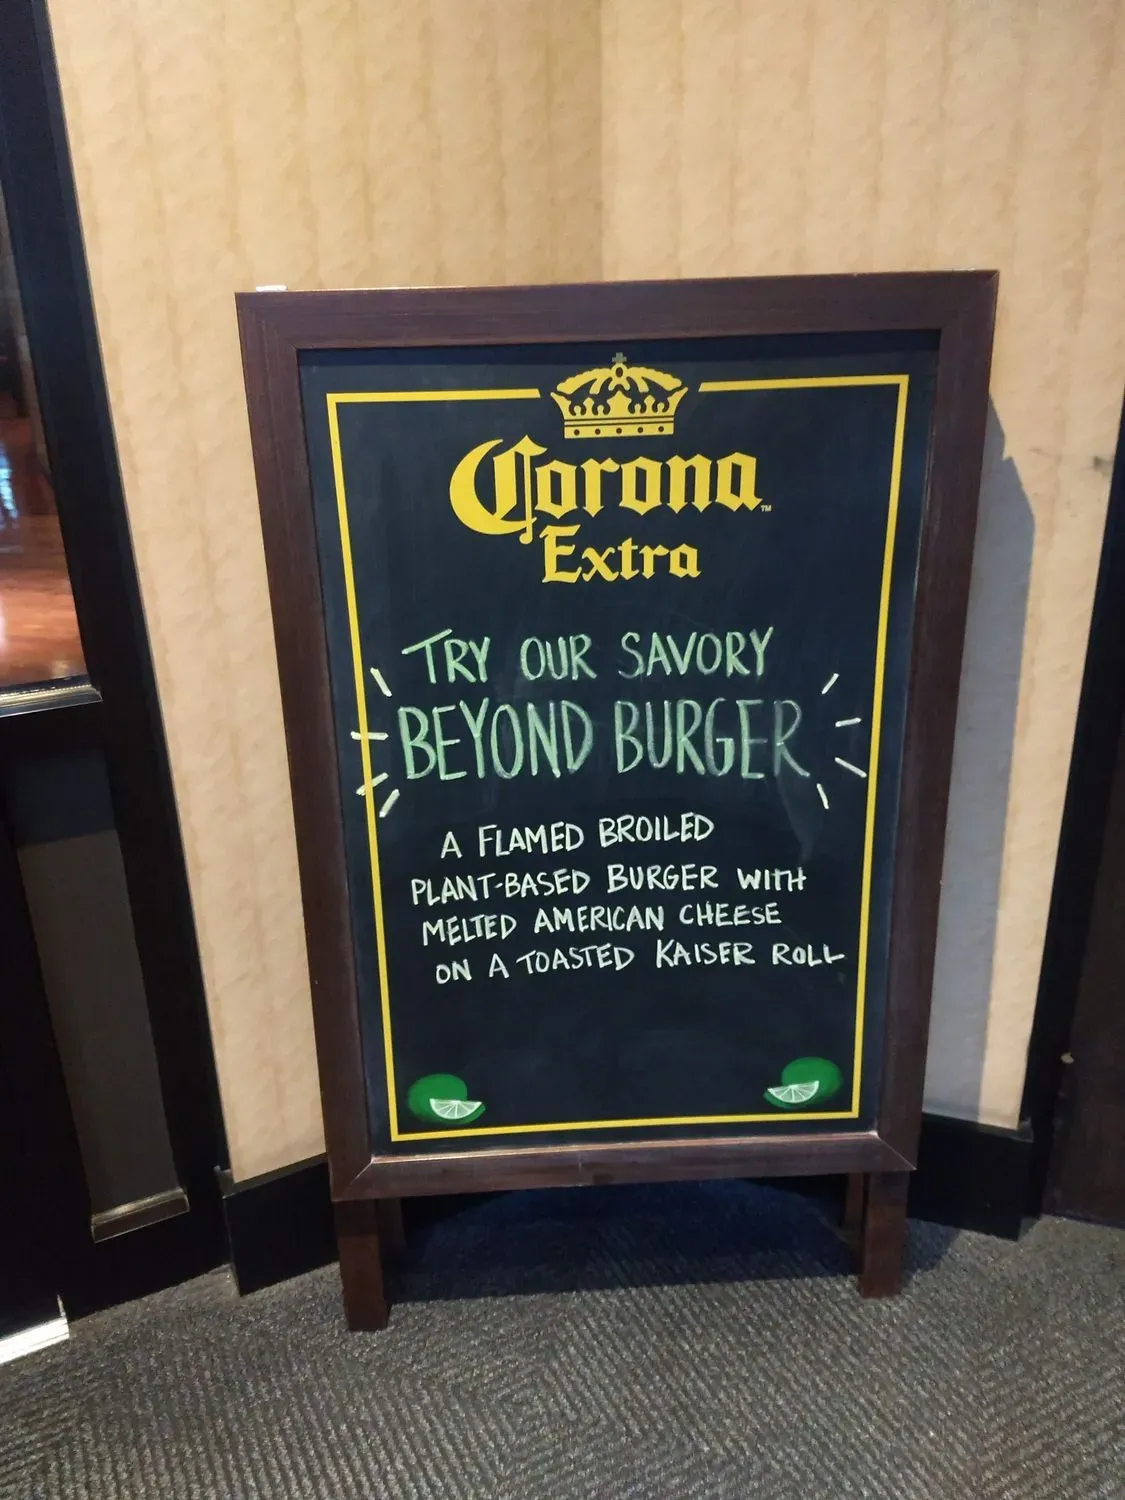 Corona
™
Extra
TRY OUR SAVORY
BEYOND BURGER
A FLAMED BROILED
PLANT-BASED BURGER WITH
MELTED AMERICAN CHEESE
ON A TOASTED KAISER ROLL